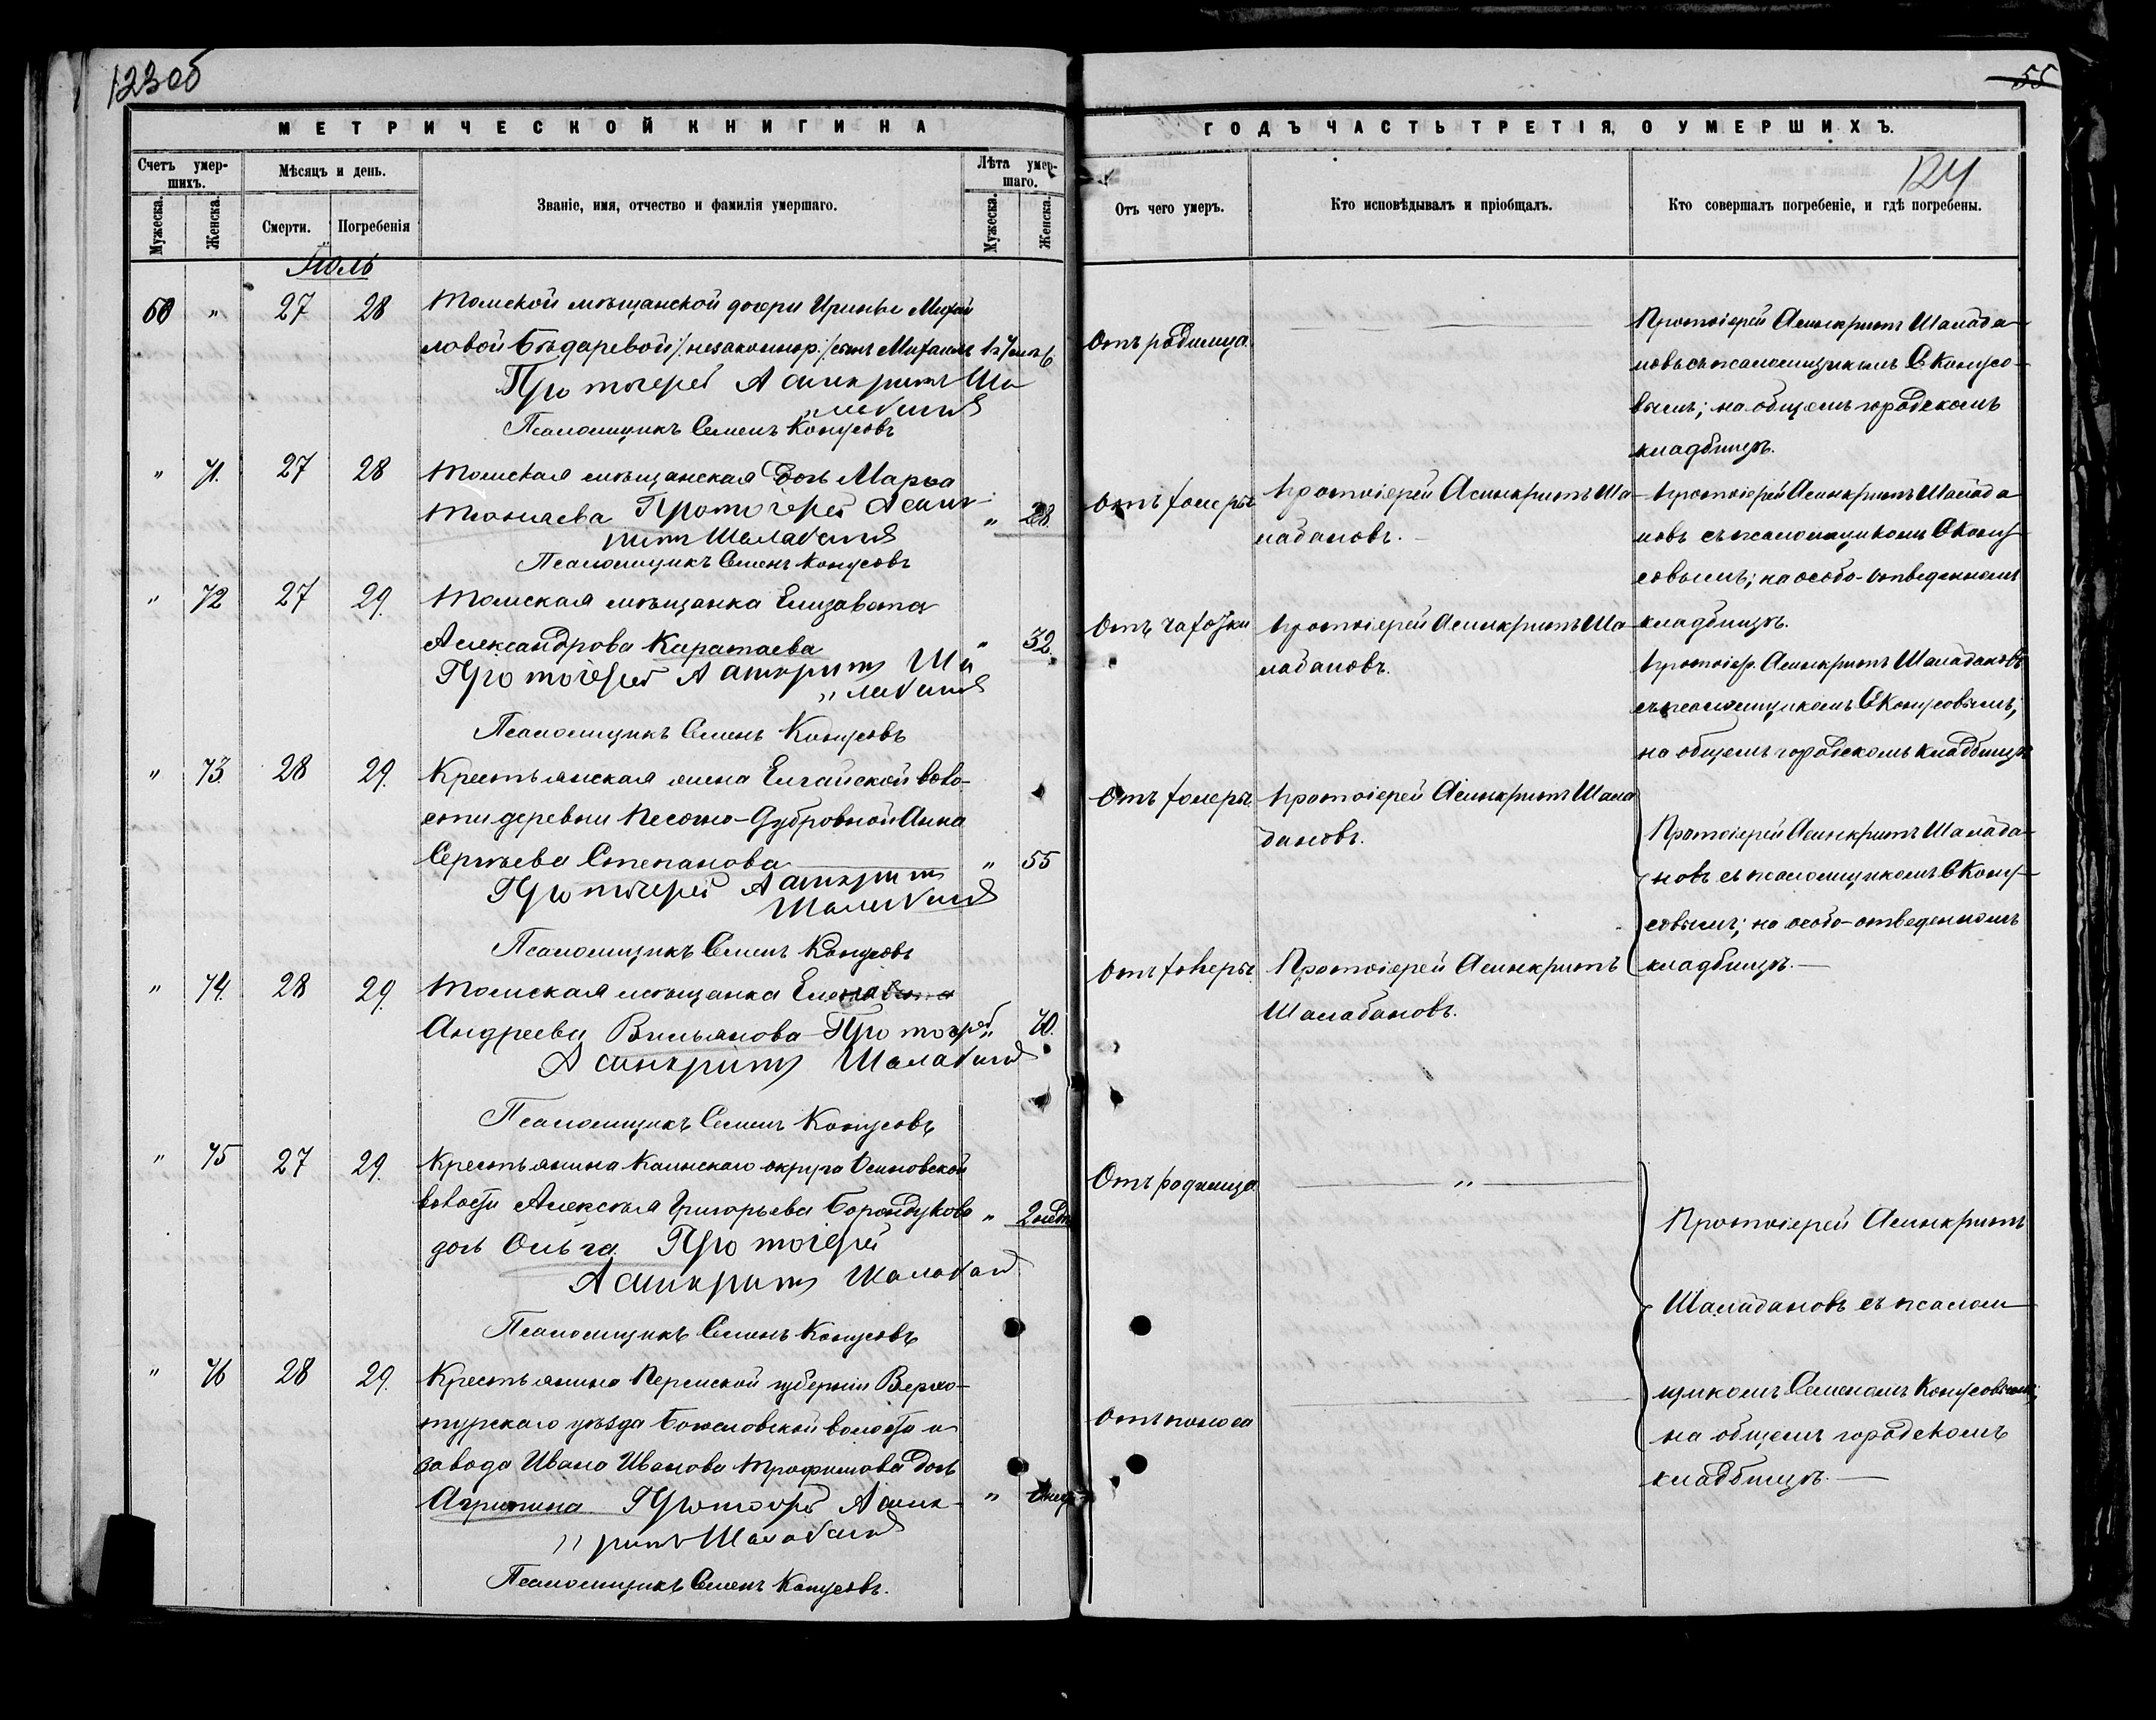 123об
55
МЕТРИЧЕСКОЙ КНИГИ НА
ГОДЪ ЧАСТЬ ТРЕТІЯ, О УМЕРШИХЪ.
124
Счетъ умер-
шихъ.
Мѣсяцъ и день.
Званіе, имя, отчество и фамилія умершаго.
Лѣта умер-
шаго.
Мужеска.
Женска.
Смерти.
Погребенія
Мужеска.
Женска.
Отъ чего умеръ.
Кто исповѣдывалъ и пріобщалъ.
Кто совершалъ погребеніе, и гдѣ погребены.
Іюль
" 27 28 Томской мѣщанской дочери Ирины Михай
ловой Бѣдаревой /:незаконнор:/ сынъ Михаилъ
Протоіерей Асинкритъ Ша
лабановъ
Псаломщикъ Семенъ Конусовъ
Отъ родимца
Протоіерей Асинкритъ Шалаба-
новъ съ псаломщикомъ С Конусо-
вымъ; на общемъ городскомъ
кладбищѣ.
" 71. 27 28 Томская мѣщанская дочь Марѳа
Протоіерей Асинк-
ритъ Шалабановъ
" 28
Псаломщикъ Семенъ Конусовъ
Отъ холеры
Протоіерей Асинкритъ Ша-
лабановъ.
Протоіерей Асинкритъ Шалаба
новъ съ псаломщикомъ С Кону-
совымъ; на особо-отведенномъ
кладбищѣ.
" 72 27 29. Томская мѣщанка Елизавета
Александрова Каратаева " 32.
Протоіерей Асинкритъ Ша
лабановъ
Псаломщикъ Семенъ Конусовъ
Отъ чахотки
Протоіерей Асинкритъ Ша-
лабановъ.
Протоіер. Асинкритъ Шалабановъ
съ псаломщикомъ С Конусовымъ;
на общемъ городскомъ кладбищѣ
" 73. 28 29. Крестьянская жена Елгайской воло-
сти деревни Песочно-Дубровной Анна
Сергѣева Степанова " 55
Протоіерей Асинкритъ
Шалабановъ
Псаломщикъ Семенъ Конусовъ
Отъ холеры.
Протоіерей Асинкритъ Шала
бановъ.
Протоіерей Асинкритъ Шалаба-
новъ съ псаломщикомъ С Кону-
совымъ; на особо-отведенномъ
кладбищѣ.
" 74. 28 29. Томская мѣщанка Елена
Андреева Вильянова Протоіерей " 40.
Асинкритъ Шалабановъ
Псаломщикъ Семенъ Конусовъ
Отъ холеры.
Протоіерей Асинкритъ
Шалабановъ.
" 75 27 29. Крестьянина Каинскаго округа Осиновской
волости Алексѣя Григорьева Борондукова " 2 нед.
дочь Ольга. Протоіерей
Асинкритъ Шалабанов
Псаломщикъ Семенъ Конусовъ
Отъ родимца
"
Протоіерей Асинкритъ
Шалабановъ съ псалом-
щикомъ Семеномъ Конусовымъ;
на общемъ городскомъ
кладбищѣ.
" 76 28 29. Крестьянина Пермской губерніи Верхо-
турскаго уѣзда Богословской волости и
завода Ивана Иванова Трофимова дочь
Агрипина Протоіерей Асинк-
ритъ Шалабановъ
Псаломщикъ Семенъ Конусовъ.
Отъ поноса